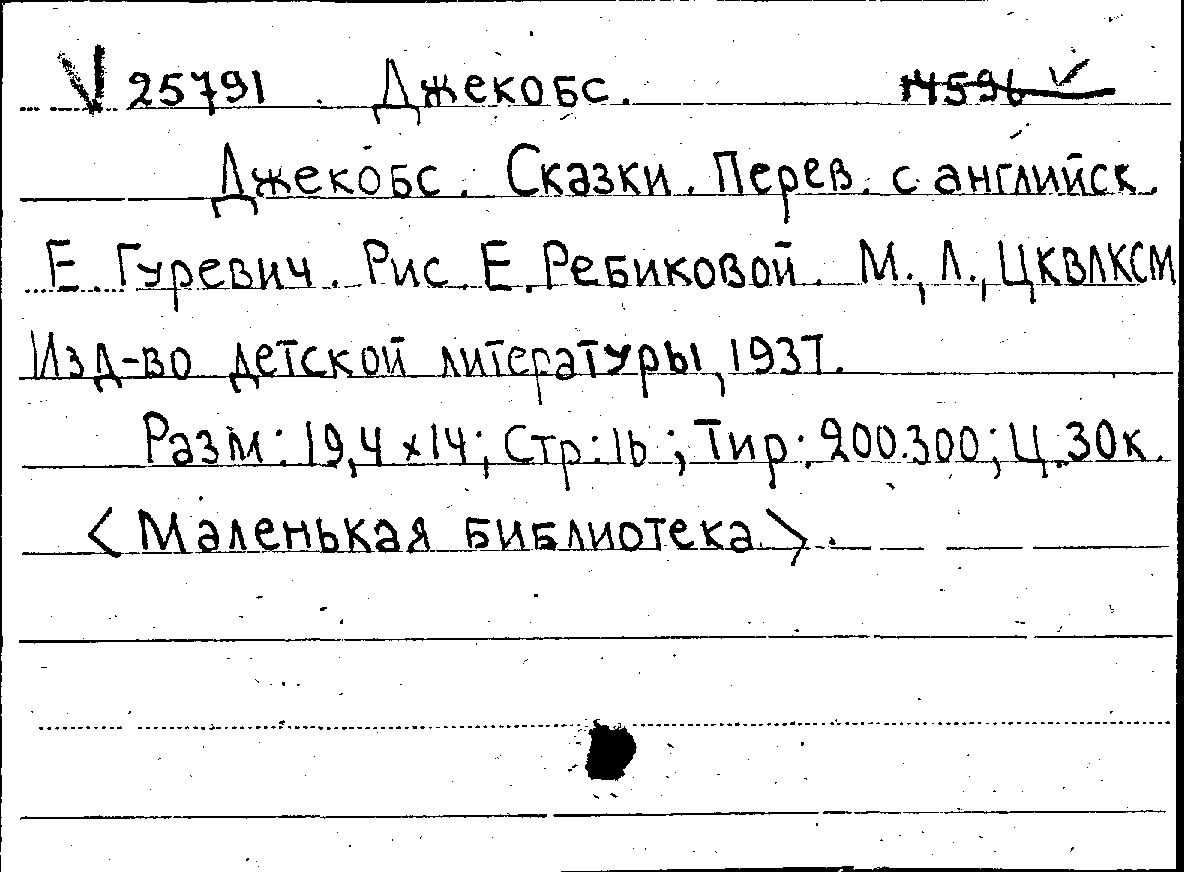 V 25791 Джекобс. 14596 V
Джекобс. Сказки. Перев. с английск.
Е. Гуревич. Рис. Е. Ребиковой. М., Л., ЦКВЛКСМ
Изд-во детской литературы, 1937.
Разм: 19,4 x 14; Стр: 16 ; Тир: 200.300; Ц. 30к.
< Маленькая библиотека >.